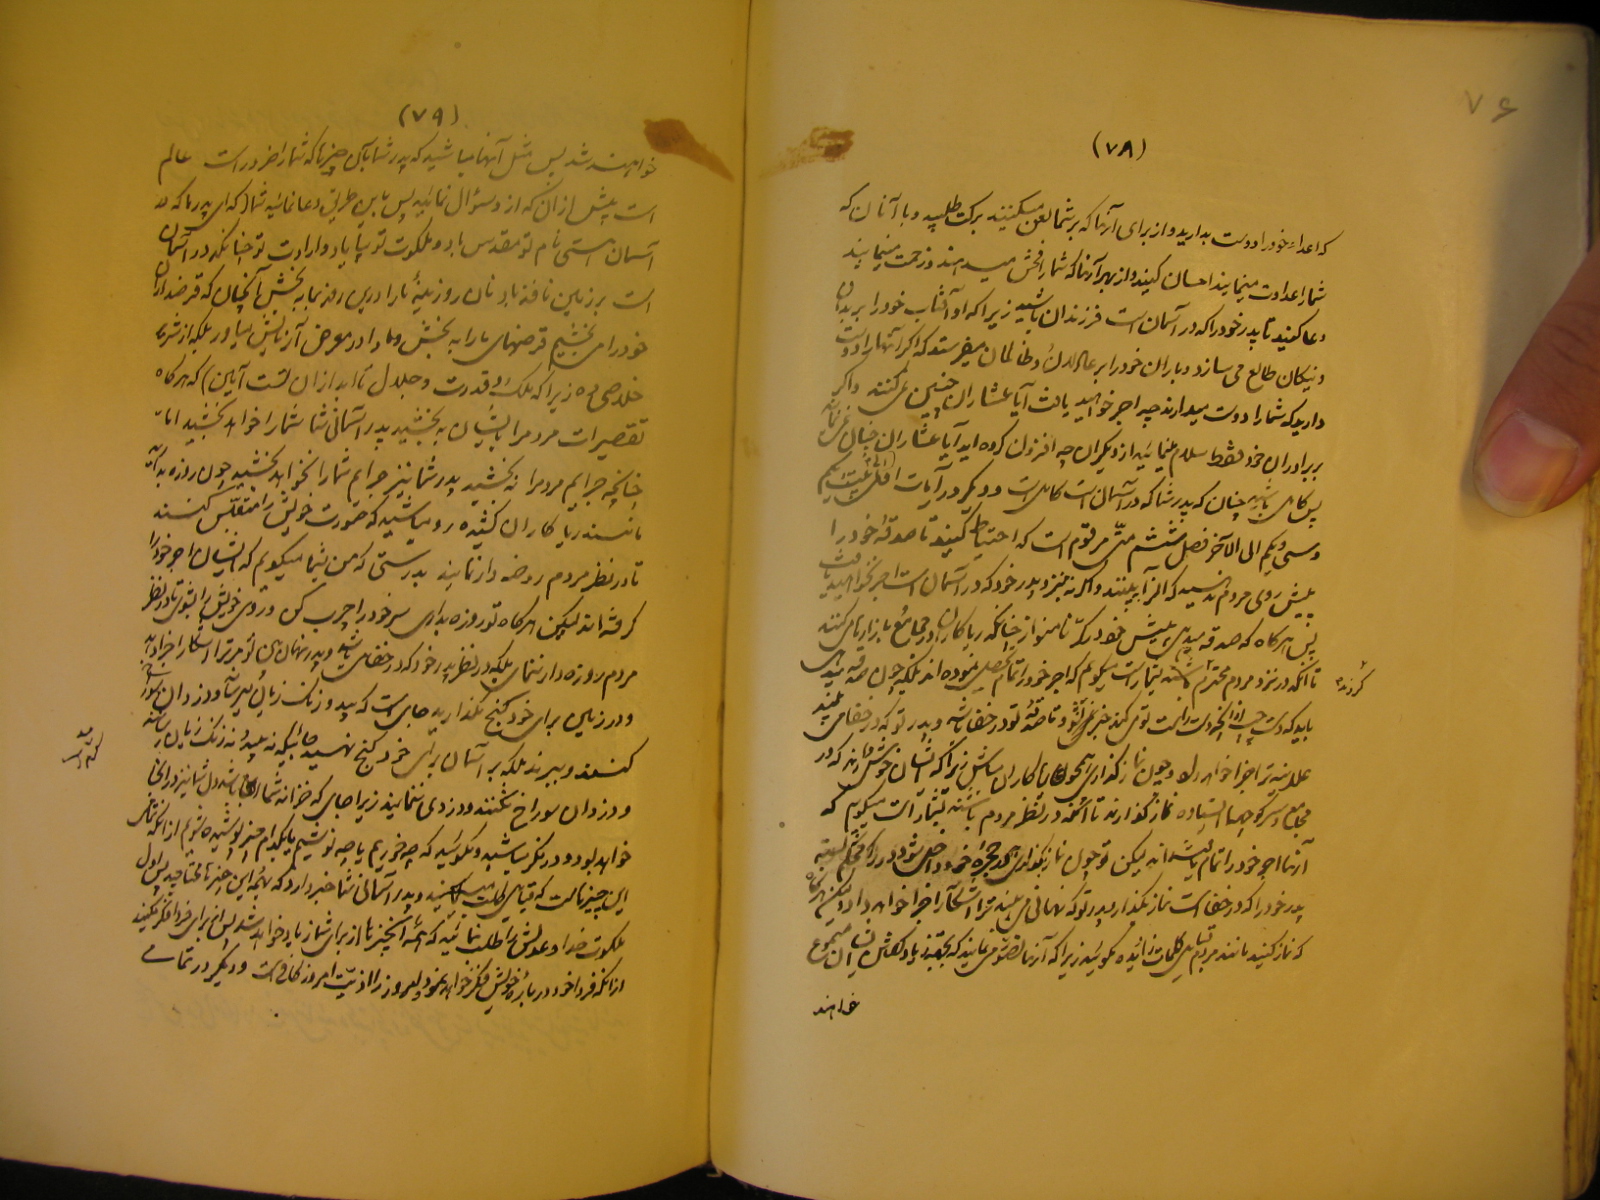 ۷۶
(۷۸)
که اعداء خود را دوست بدارید و از برای آنها که بر شما لعن میکنند برکت طلبید و با آنان که
شما را عداوت مینمایند احسان کنید و از بهر آنها که شما را فحش میدهند و زحمت مینمایند
دعا کنید تا پدر خود را که در آسمان است فرزندان باشید زیرا که او آفتاب خود را بر بدان
و نیکان طالع می سازد و باران خود را بر عادلان و ظالمان میفرستد که اگر آنها را دوست
دارید که شما را دوست میدارند چه اجر خواهید یافت آیا عشاران چنین نمی کنند و اگر
برادران خود فقط سلام مینمائید از دیگران چه افزون کرده اید آیا عشاران چنان نمی نمایند
پس کامل باشید چنان که پدر شما که در آسمان است کامل است و دیگر در آیات
وسی ویکم الی الآخر فصل ششم متی مرقوم است که احتیاط کنید تا صدقهٔ خود را
پیش روی مردم ندهید که آنرا به بینند واگر نه نزد پدر خود که در آسمان است اجر نخواهید یافت
پس هر گاه که صدقه میدهی پیش خود کرنا منواز چنانکه ریاکاران در مجامع و بازارها می کنند
تا آنکه در نزد مردم محترم باشند بشما راست میگویم که اجر خود را تمام تحصیل نموده اند بلکه چون صدقه میدهی
گردند
باید که دست چپ از آنچه دست راست تو می کند خبر نشود تا صدقهٔ تو در خفا باشد و پدر تو که در خفا می بیند
علانیه ترا جزا خواهد داد و چون نماز گذاری همچون ریاکاران مباش زیرا که ایشان خوش دارند که در
مجامع و سر کوچها ایستاده نماز گذارند تا آنکه در نظر مردم باشند بشما راست میگویم که
آنها اجر خود را تمام یافته اند لیکن تو چون نماز بگذاری در حجرهٔ خود داخل شو و در را محکم بسته
پدر خود را که در خفا است نماز بگذار و پدر تو که نهانی می بیند ترا آشکارا جزا خواهد داد
که نماز کنید مانند مردم قبایل کلمات زائده مگوئید زیرا که آنها تصور می نمایند که بجهة زیاد گفتن ایشان مسموع
خواهند
(۷۹)
خواهند شد پس مثل آنها مباشید که پدر شما بآن چیزها که شما را ضرور است عالم
است پیش از آن که از او سؤال نمائید پس باین طریق دعا نمائید شما (که ای پدر ما که در
آسمان استی نام تو مقدس باد و ملکوت تو بیاید و ارادت تو چنانکه در آسمان
است بر زمین نافذ باد نان روزینهٔ ما را درین روز بما به بخش آنچنان که قرضداران
خود را می بخشیم قرضهای ما را به بخش و ما را در معرض آزمایش میاور بلکه از شریر
خلاصی ده زیرا که ملک و قدرت و جلال تا ابد از آن تست آمین) که هر گاه
تقصیرات مردم را بایشان به بخشید پدر آسمانی شما شما را خواهد بخشید اما
چنانچه جرایم مردم را نه بخشید پدر شما نیز جرایم شما را نخواهد بخشید چون روزه بدارید
مانند ریاکاران کشیده رو مباشید که صورت خویش را متقلّس کنند
تا در نظر مردم روزه دار نمایند بدرستی که من بشما میگویم که ایشان اجر خود را
گرفته اند لیکن هر گاه تو روزه بداری سر خود را چرب کن و روی خویش را بشوی تا در نظر
مردم روزه دار ننمای بلکه در نظر پدر خود که در خفا می باشد و پدر نهان بین تو مر ترا آشکارا جزا دهد
و در زمین برای خود گنج نگذارید جای است که بید و زنگ زیان میرساند و دزدان سوراخ
کنند و ببرند بلکه بر آسمان برای خود گنج نهید جائیکه نه بید و نه زنگ زیان رساند
و دزدان سوراخ نکنند و دزدی ننمایند زیرا جای که خزانه شما باشد دل شما نیز در آنجا
خواهد بود و در فکر مباشید و مگوئید که چه خوریم یا چه نوشیم یا بکدام چیز پوشیده شویم از آنکه تمامی
این چیزهاست که قبایل طلب میکنند و پدر آسمانی شما خبر دارد که بهمهٔ این چیزها محتاجید پس اول
ملکوت خدا و عدلش را طلب نمائید که همه آنچیزها از برای شما زیاد خواهد شد پس از برای فردا فکر مکنید
از آنکه فردا خود در بارهٔ خویش فکر خواهد نمود و هر روز را اذیّت امروز کافی است و دیگر در تمامی